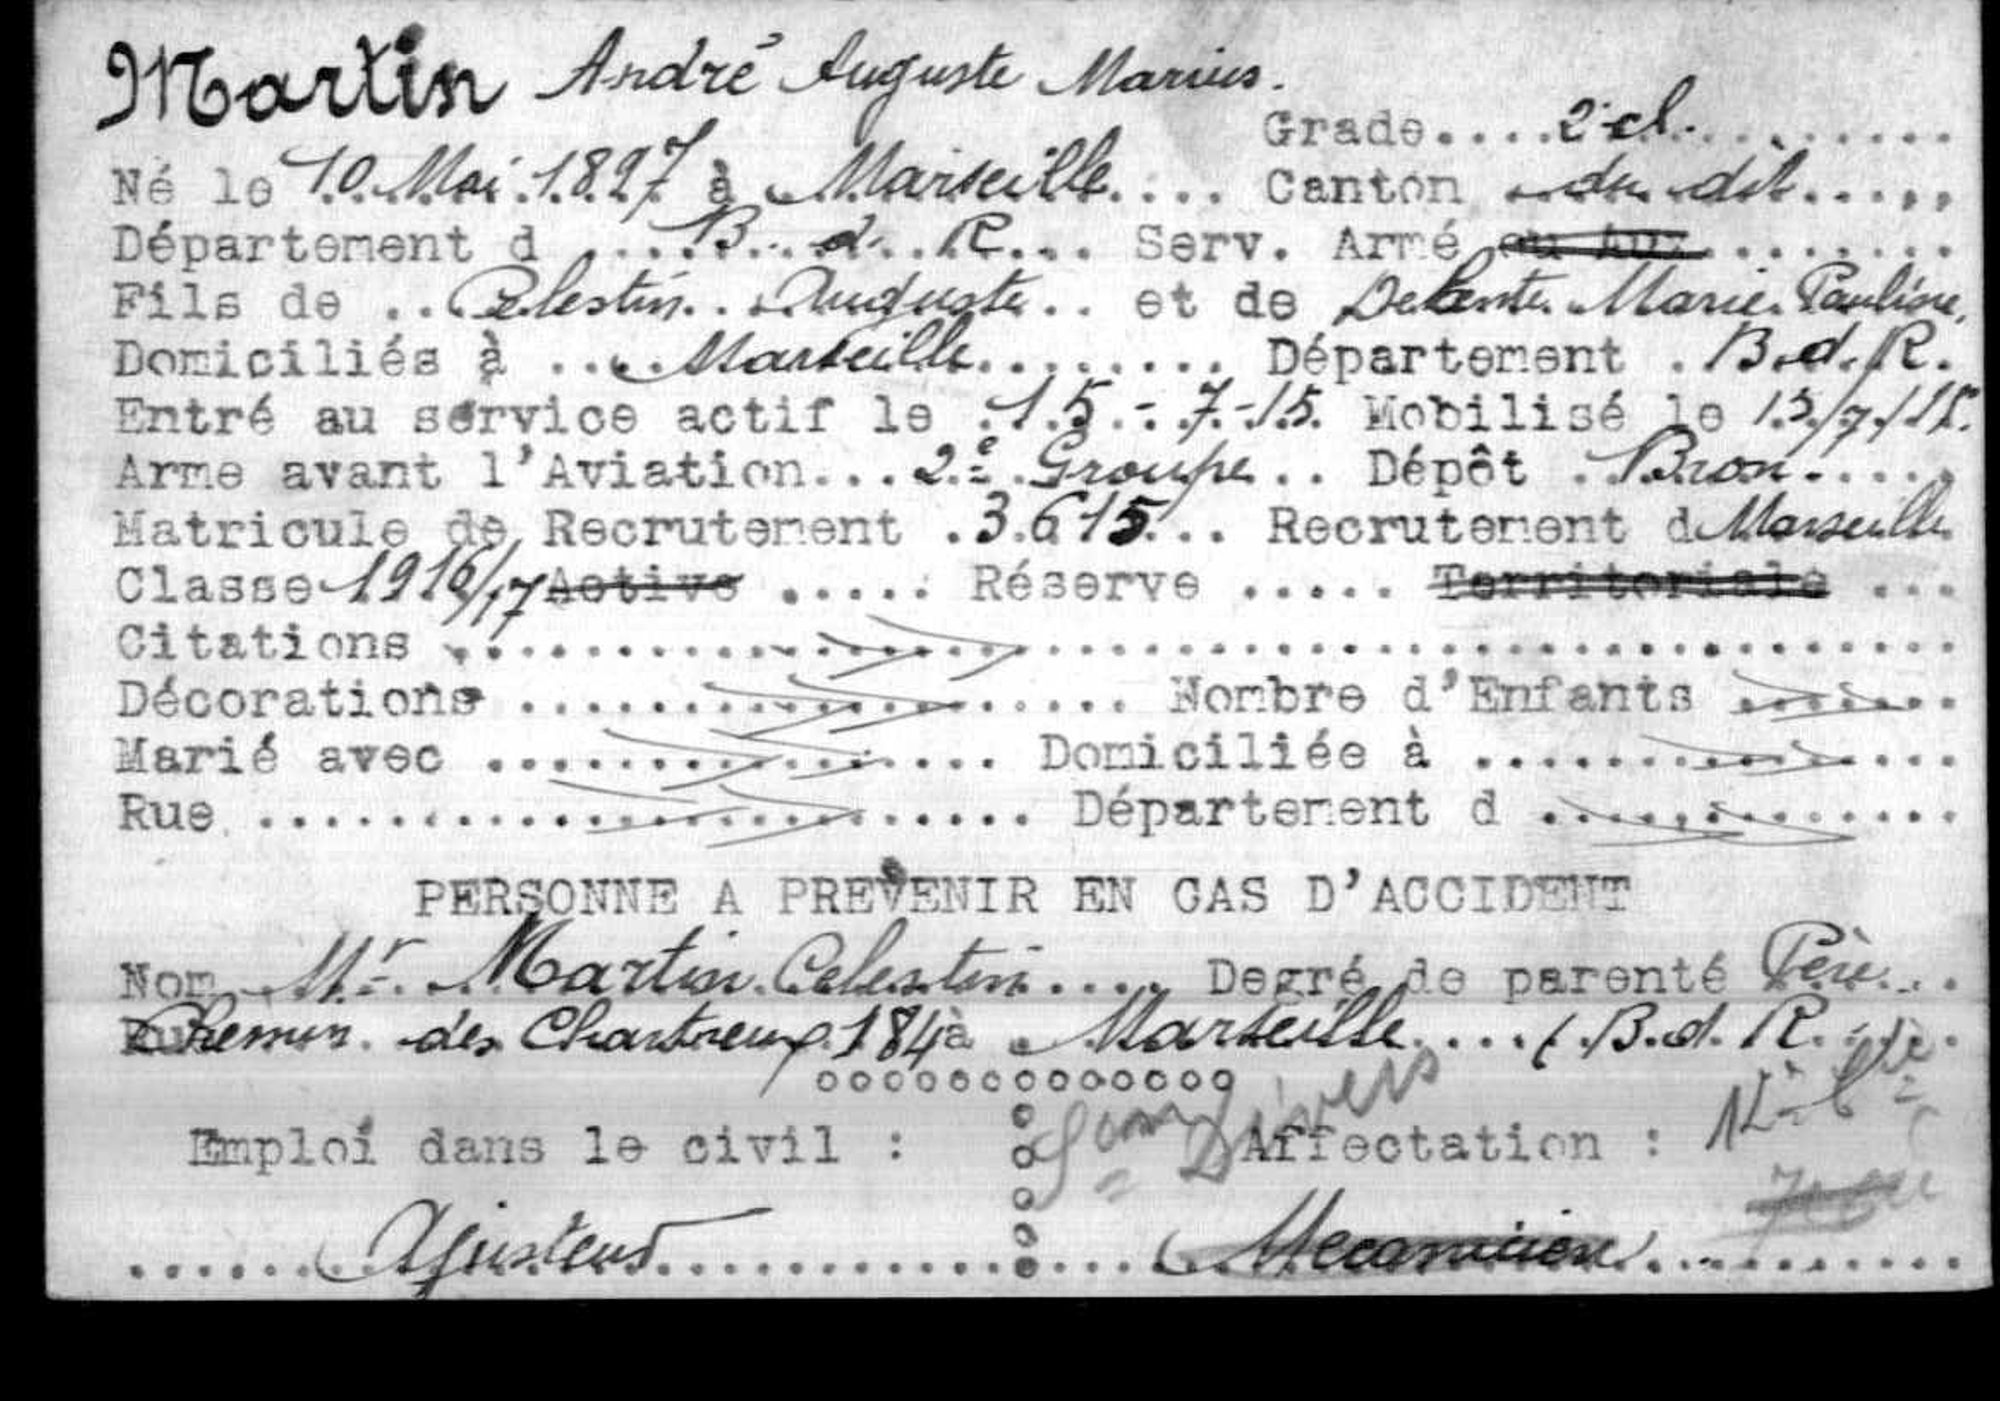 Martin André Auguste Marius.
Grade....2e cl.
Né le 10 Mai 1897 à Marseille.... Canton du dit.....
Département d ...B. d. R... Serv. Armé ou Aux.......
Fils de ..Celestin Auguste.. et de Marie Pauline
Domiciliés à ... Marseille........ Département . B.d.R.
Entré au service actif le .15-7-15. Mobilisé le 15/7/15.
Arme avant l'Aviation...2e Groupe.. Dépôt .Bron.....
Matricule de Recrutement .3615... Recrutement d Marseille
Classe 1916/17 Active ..... Réserve ..... Territoriale ...
Citations
Décorations ................... Nombre d'Enfants .......
Marié avec ................ Domiciliée à ...............
Rue ........................ Département d .............
PERSONNE A PREVENIR EN CAS D'ACCIDENT
Nom Mr. Martin Celestin.... Degré de parenté Père...
Chemin des Chartreux 184 à Marseille....(.B.d.R...).
Divers
Emploi dans le civil : Affectation :
Ajusteur Mecanicien